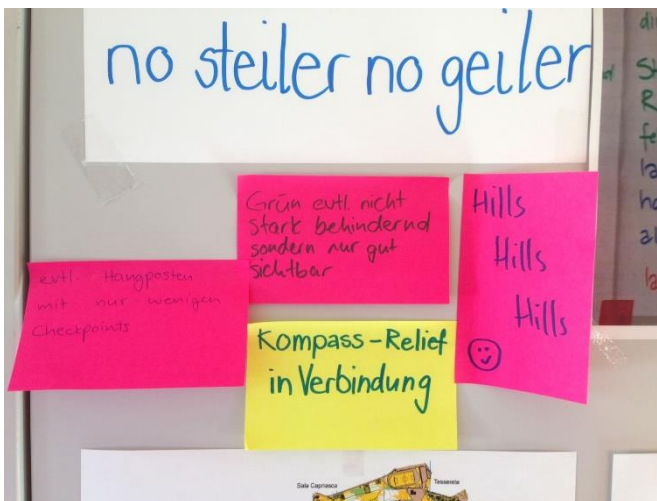 no steiler no geiler
Grün evtl. nicht
stark behindernd
sondern nur gut
sichtbar
Hills
Hills
Hills
evtl. Hangposten
mit nur wenigen
Checkpoints
Kompass-Relief
in Verbindung
Sala Capriasca
Tesserete